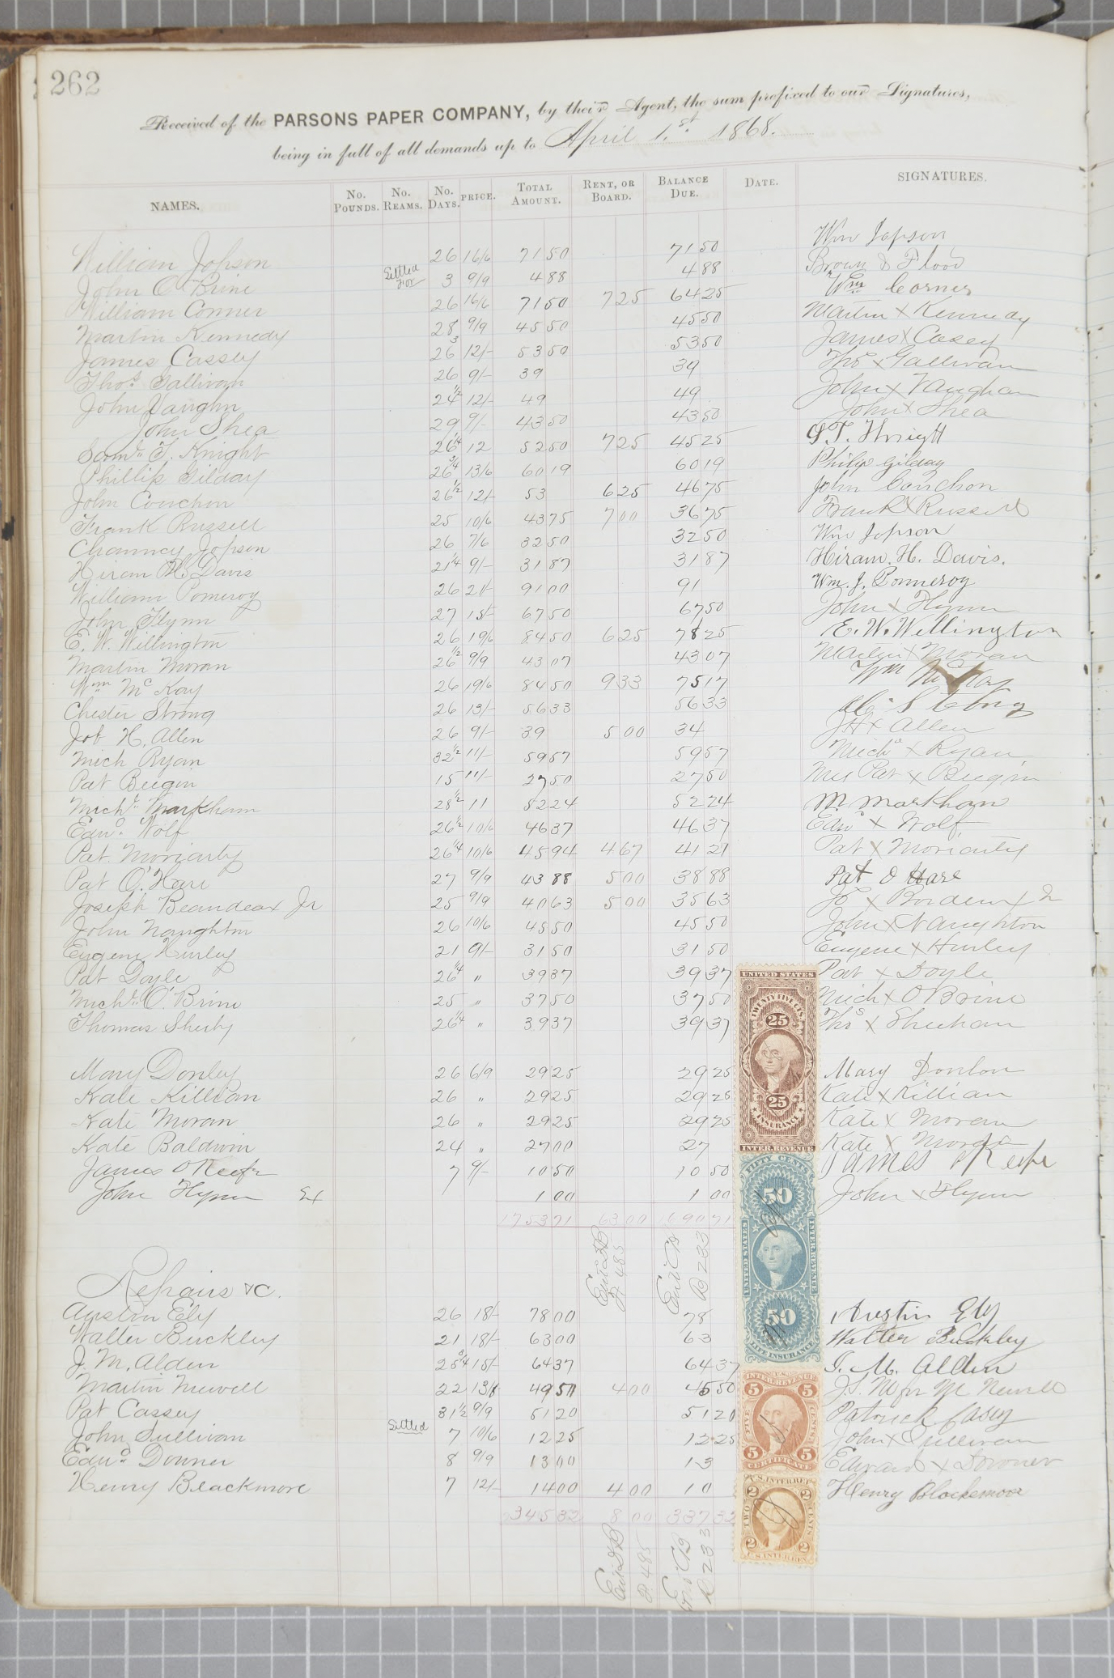 262
Received of the PARSONS PAPER COMPANY, by their Agent, the sum prefixed to our Signatures,
being in full of all demands up to April 1.st 1868.
NAMES. No. POUNDS. No. REAMS. No. DAYS. PRICE. TOTAL AMOUNT. RENT, OR BOARD. BALANCE DUE. DATE. SIGNATURES.
William Jopson 26 16/6 71 50 71 50 Wm Jopson
John O Brine Settled For 3 9/9 4 88 4 88 Brown & Flood
William Conner 26 16/6 71 50 7 25 64 25 Wm Corner
Martin Kennedy 28 9/9 45 50 45 50 Martin X Kennedy
James Cassey 26 12/- 53 50 53 50 James X Casey
Thos Sullivan 26 9/- 39 39 Thos X Sullivan
John Vaughn 24 1/2 12/- 49 49 John X Vaughan
John Shea 29 9/- 43 50 43 50 John X Shea
Saml T. Knight 26 1/4 12 52 50 7 25 45 25 S.T. Knight
Phillip Gilday 26 3/4 13/6 60 19 60 19 Philip Gilday
John Couchon 26 1/2 12/- 53 6 25 46 75 John Couchon
Frank Russell 25 10/6 43 75 7 00 36 75 Frank X Russell
Chauncy Jopson 26 7/6 32 50 32 50 Wm Jopson
Hiram H. Davis 21 1/4 9/- 31 87 31 87 Hiram. H. Davis.
William Pomeroy 26 21/- 91 00 91 Wm. J. Pomeroy
John Flynn 27 15/- 67 50 67 50 John X Flynn
E. W. Wellington 26 19/6 84 50 6 25 78 25 E. W. Wellington
Martin Moran 26 1/2 9/9 43 07 43 07 Martin X Moran
Wm McKay 26 19/6 84 50 9 33 75 17 Wm McKay
Chester Strong 26 13/- 56 33 56 33
Job H. Allen 26 9/- 39 5 00 34 JH X Allen
Mich Ryan 32 1/2 11/- 59 57 59 57 Michl X Ryan
Pat Beegin 15 11/- 27 50 27 50 Mrs Pat X Beegin
Michl Markham 28 1/2 11 52 24 52 24 M Markham
Edwd Wolf 26 1/2 10/6 46 37 46 37 Edwd X Wolf
Pat Moriarty 26 1/4 10/6 45 94 4 67 41 21 Pat X Moriarty
Pat O'Hare 27 9/9 43 88 5 00 38 88 Pat O Hare
Joseph Beaudeax Jr 25 9/9 40 63 5 00 35 63 Jo X Bordeux Jr
John Naughton 26 10/6 45 50 45 50 John X Naughton
Eugene Hurley 21 9/- 31 50 31 50 Eugene X Hurley
Pat Doyle 26 1/4 " 39 37 39 37 Pat X Doyle
Michl O'Brine 25 " 37 50 37 50 Mich X O Brine
Thomas Sheehy 26 1/4 " 39 37 39 37 Thos X Sheehan
Mary Donley 26 6/9 29 25 29 25 Mary Donlon
Kate Killian 26 " 29 25 29 25 Kate X Killian
Kate Moran 26 " 29 25 29 25 Kate X Moran
Kate Baldwin 24 " 27 00 27 Kate X Moran
James O Keefe 7 9/- 10 50 10 50 James O Keefe
John Flynn Ex 1 00 1 00 John X Flynn
1753 71 63 00 1690 71
Ent'd DB P. 485
Ent'd CB P 233
Repairs &c.
Austin Ely 26 18/- 78 00 78 Austin Ely
Walter Buckley 21 18/- 63 00 63 Walter Buckley
J. M. Alden 25 3/4 15/- 64 37 64 37 J. M. Alden
Martin Newell 22 13/6 49 50 4 00 45 50 Newell
Pat Cassey 31 1/2 9/9 51 20 51 20 Patrick Casey
John Sullivan Settled 7 10/6 12 25 12 25 John X Sullivan
Edwd Downer 8 9/9 13 00 13 Edward X Downer
Henry Blackmore 7 12/- 14 00 4 00 10 Henry Blackmoor
345 32 8 00 337 32
Ent'd DB P. 485
Ent'd CB P 233
UNITED STATES
TWENTY FIVE CTS
25
25
INSURANCE
INTER. REVENUE
FIFTY CENTS
50
UNITED STATES
INTER. REVENUE
50
LIFE INSURANCE
U.S.
INTER. REVENUE
5 5
FIVE CENTS
5 5
CERTIFICATE
U.S. INTER. REV.
TWO CENTS
2 2
U.S. INTER. REV.